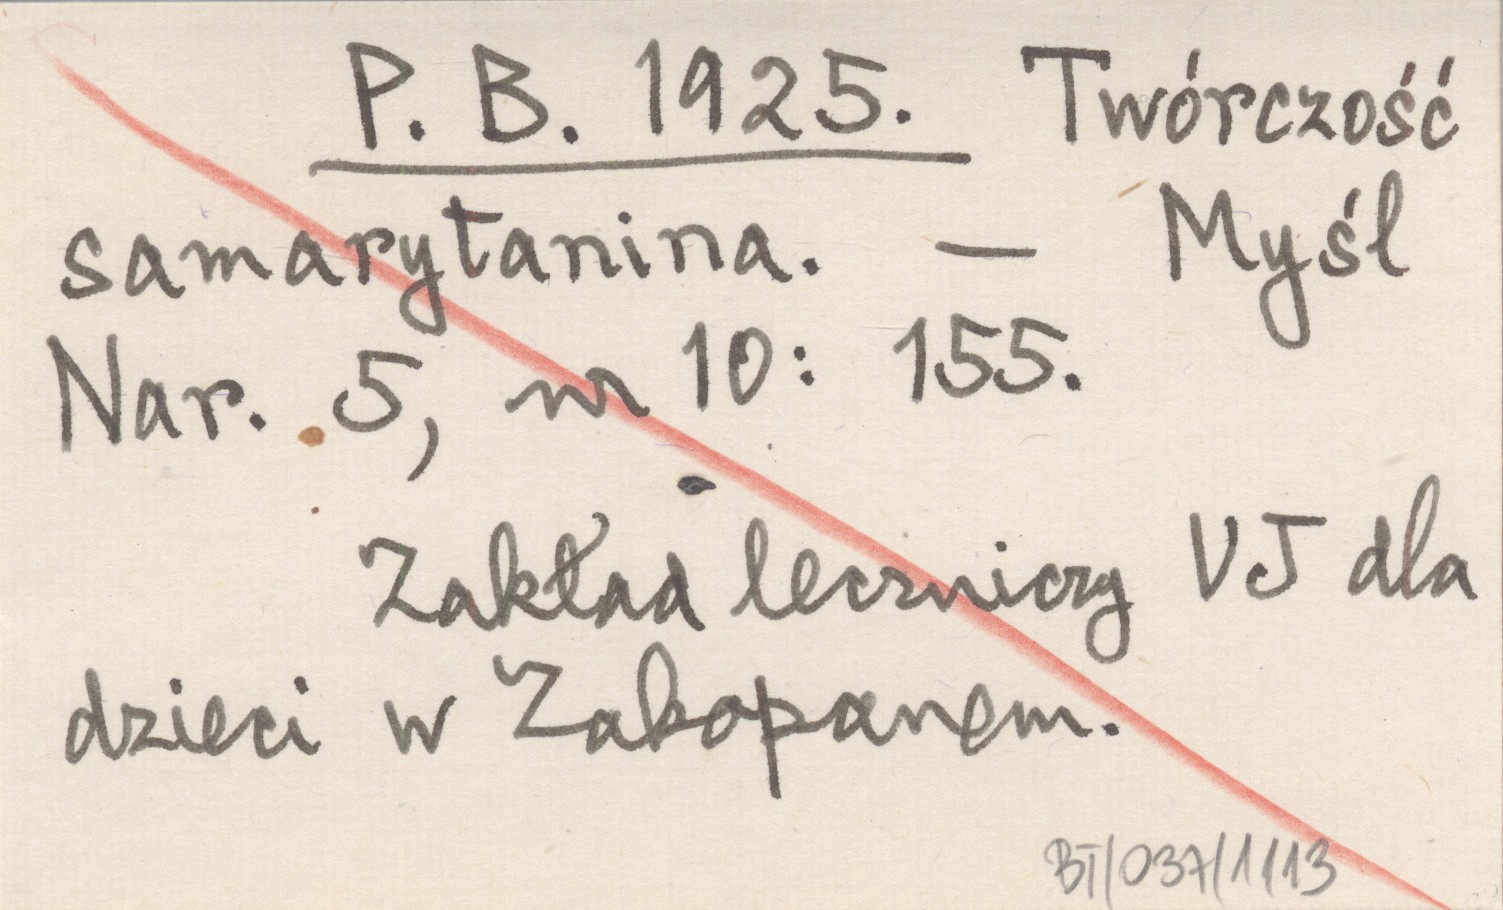 P. B. 1925. Twórczość
samarytanina. — Myśl
Nar. 5, nr 10: 155.
Zakład leczniczy UJ dla
dzieci w Zakopanem.
BT/037/1/13